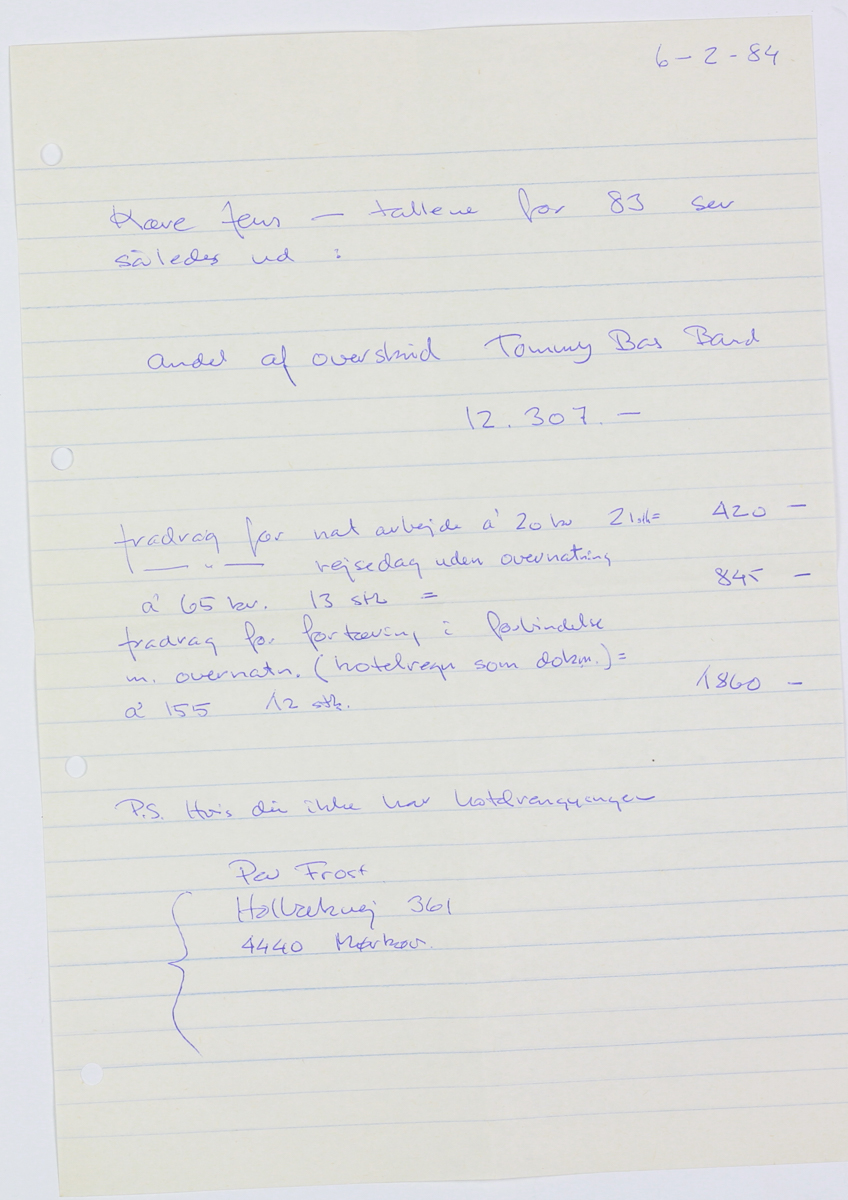 6 - 2 - 84
Kære Jens — tallene for 83 ser
således ud :
andel af overskud Tommy Bas Band
12.307. —
fradrag for nat arbejde á 20 kr 21 stk = 420 —
— " — rejsedag uden overnatning
á 65 kr. 13 stk = 845 —
fradrag for fortæring i forbindelse
m. overnatn. (hotelregn som dokm.) =
á 155 12 stk. 1860 —
P.S. Hvis du ikke har
Per Frost
Holbækvej 361
4440 Mørkøv.